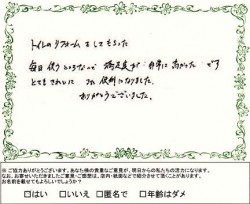 トイレのリフォームをしてもらった
毎日使うところなので 満足度が 非常に高かった です
とてもきれいに 又 便利になりました。
ありがとうございました。
※ご協力ありがとうございます。あなた様の貴重なご意見が、明日からの私たちの活力になります。
なお、お寄せいただきましたご意見・ご感想は、店内・紙面などで紹介させて頂くことがあります。
お名前を載せてもよろしいでしょうか？
□はい □いいえ □匿名で □年齢はダメ